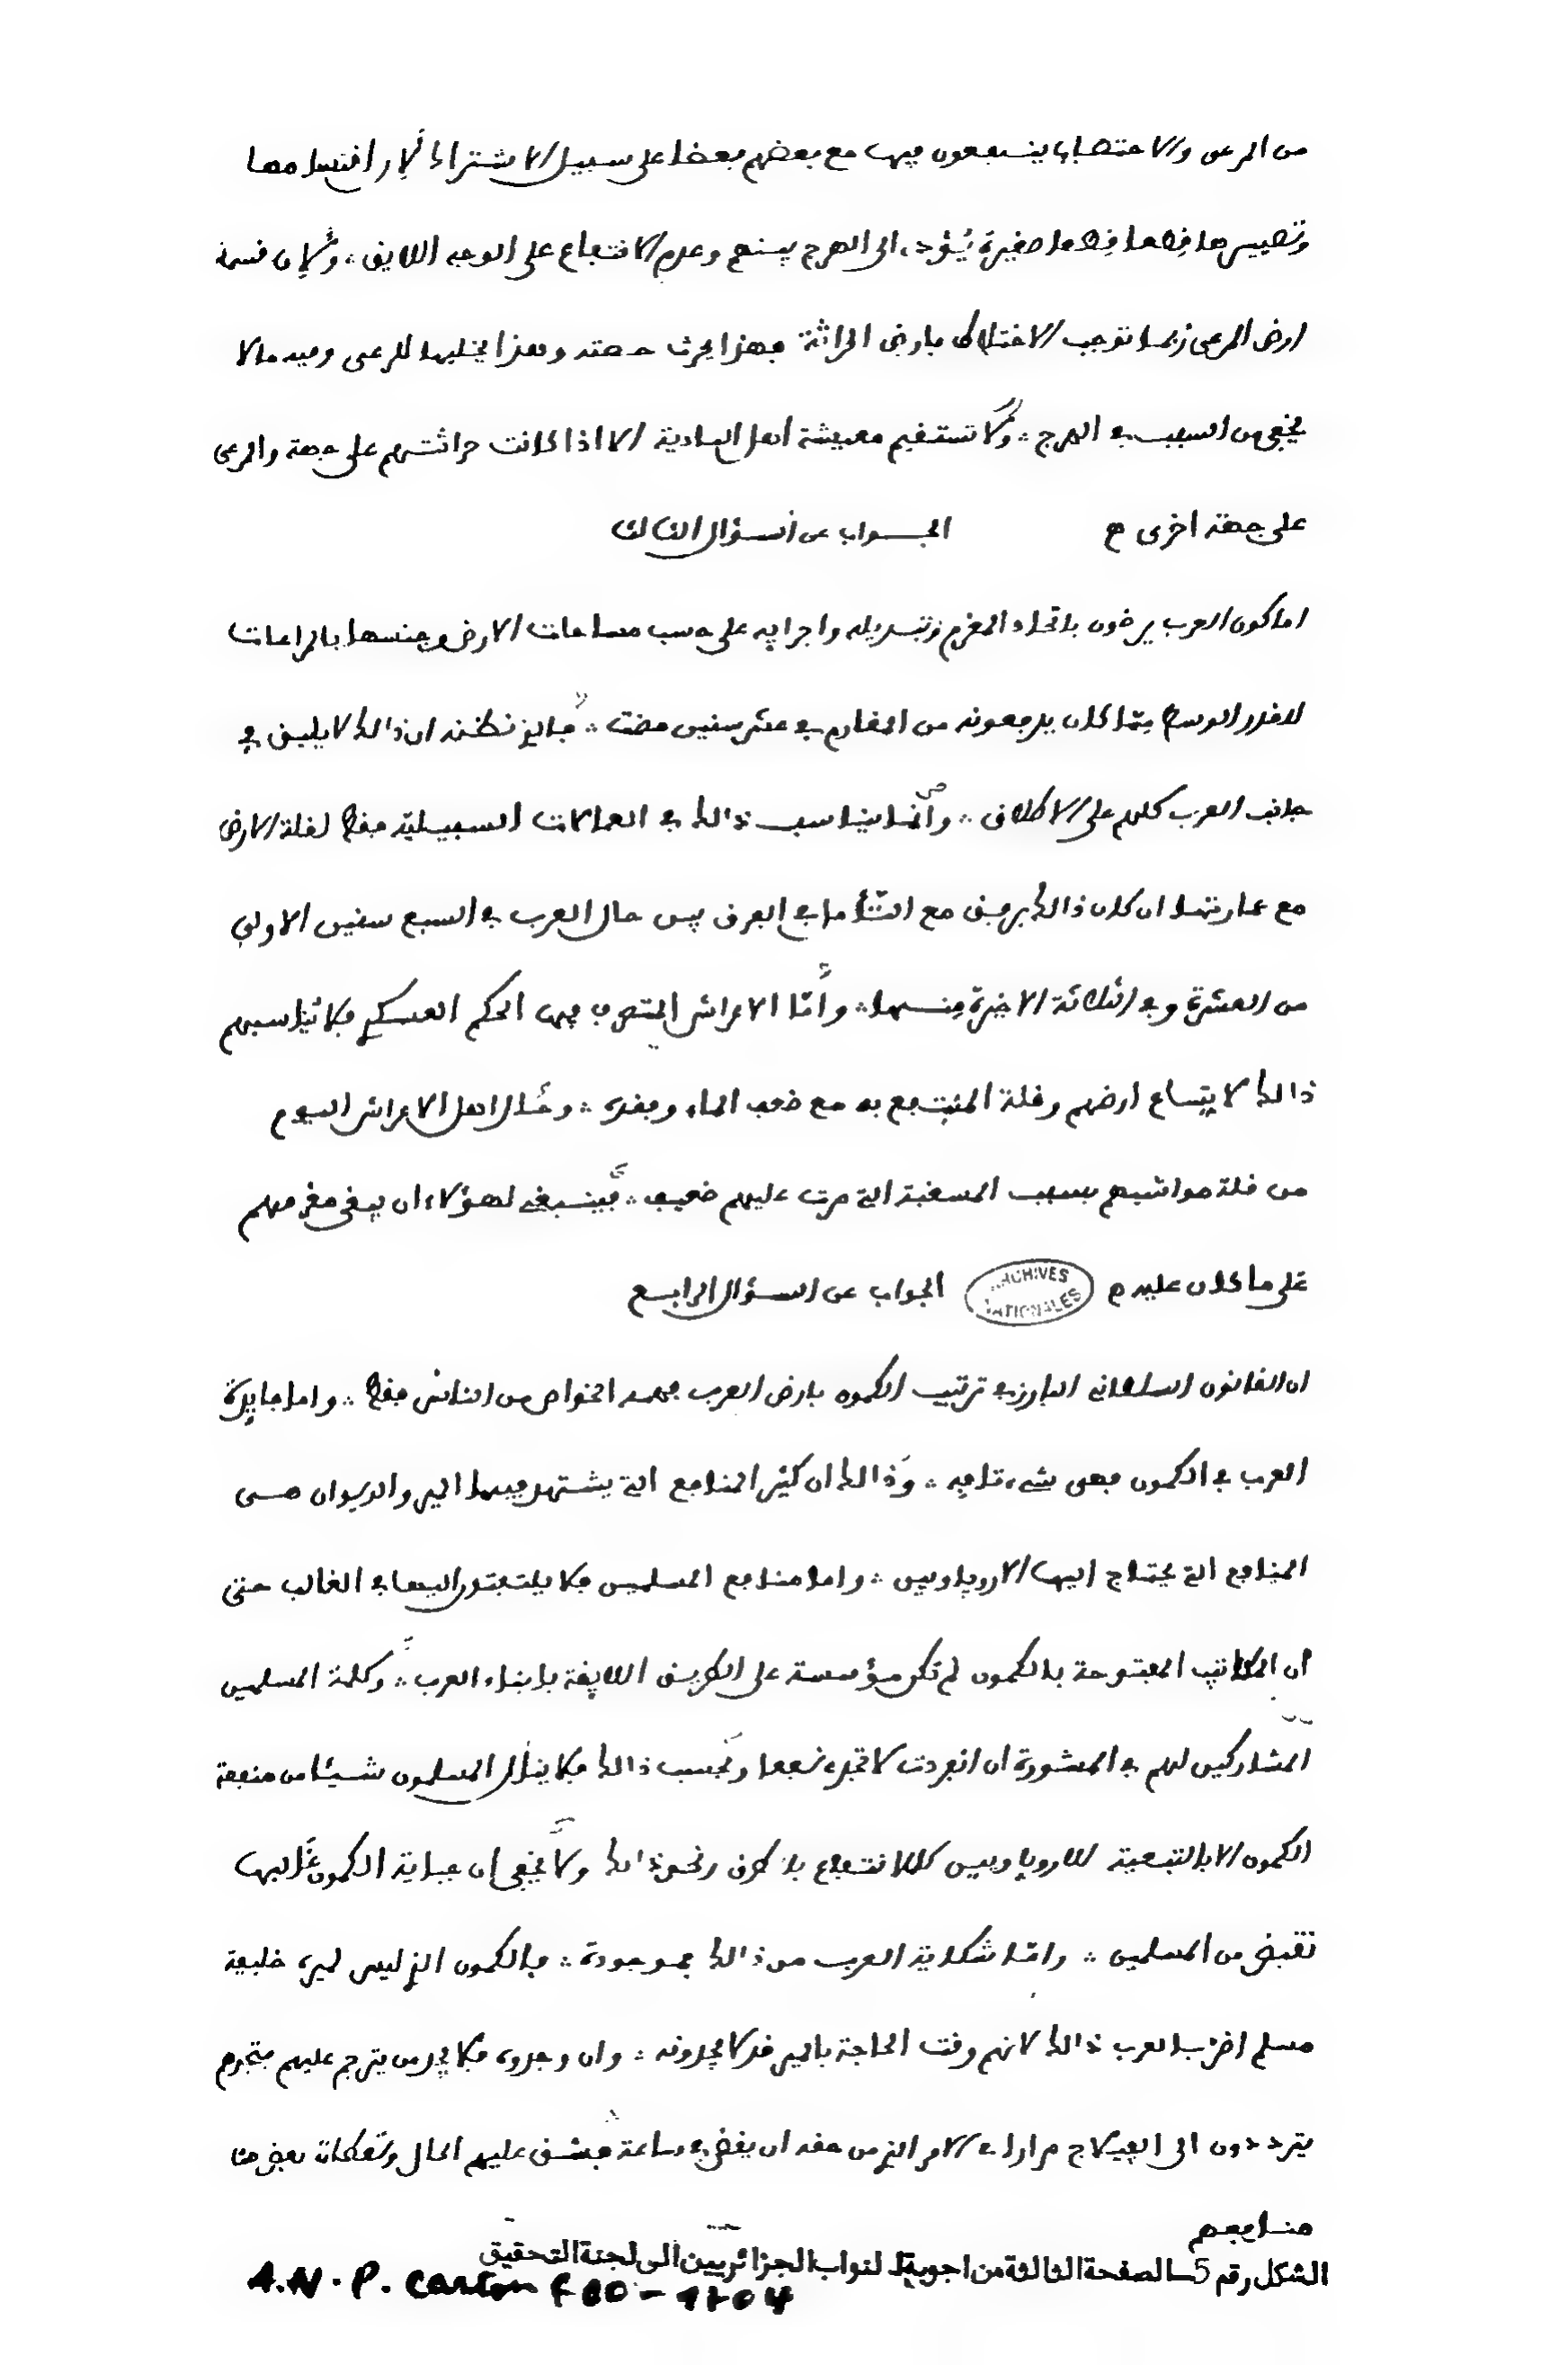 من المرعى والاحتطاب ينتفعون فيها مع بعضهم بعضا على سبيل الاشتراك لان اقتسامها
وتصييرها قطعا قطعا صغيرة يُؤدي الى الهرج بينهم وعدم الانتفاع على الوجه اللايق ؞ ولان قسمة
ارض المرعى ربما توجب الاختلاط بارض الحراثة فهذا يحرث حصته وهذا يخليها للرعى وفيه مالا
يخفى من السبب في الهرج ؞ ولا تستقيم معيشة اهل البادية الا اذا كانت حراثتهم على جهة والمرعى
على جهة اخرى ح الجواب عن السؤال الثالث
اما كون العرب يرضون باتحاد المغرم وتبديله واجرايه على حسب مساحات الارض وجنسها بالمراعات
للقدر الوسط مِمّا كان يدفعونه من المغارم في عشر سنين مضت ؞ فالذي نظنه ان ذالك لا يليق في
جانب العرب كلهم على الاطلاق ؞ وانّما يناسب ذالك في العمالات السبيليّة فقط لقلة الارض
مع عمارتها ان كان ذالك برفق مع التّأمل في الفرق بين حال العرب في السبع سنين الاولى
من العشرة وفي الثلاثة الاخيرة مِنها ؞ وأمّا الاعراش المتصرف فيها الحكم العسكري فلا يناسبهم
ذالك لاتساع ارضهم وقلة المنتفع به مع ضعف الماء وفقده ؞ وحال اهل الاعراش اليوم
من قلة مواشيهم بسبب المسغبة التي مرت عليهم ضعيف ؞ فينبغي لهؤلاء ان يبقى مغرمهم
على ما كان عليه ح ARCHIVES NATIONALES الجواب عن السؤال الرابع
ان القانون السلطاني البارز في ترتيب الكمون بارض العرب فهمه الخواص من الناس فقط ؞ واما فايدة
العرب في الكمون فهى شيء تافه ؞ وذالك ان كثير المنافع التي يشتهر فيها المير والديوان هى
المنافع التي يحتاج اليها الاروباويين ؞ واما منافع المسلمين فلا يلتفتون اليها في الغالب حتى
ان المكاتب المفتوحة بالكمون لم تكن مؤسسة على الطريق اللايقة بابناء العرب ؞ وكلمة المسلمين
المشاركين لهم في المشورة ان انفردت لا تجدي نفعا وبحسب ذالك فلا ينال المسلمون شيئا من منفعة
الكمون الا بالتبعية للاروباويين كالانتفاع بالطرق ونحو ذالك ولا يخفى ان جباية الكمون غالبها
تقبض من المسلمين ؞ وامّا شكاية العرب من ذالك فموجودة ؞ فالكمون الذي ليس لميره خليفة
مسلم اضر بالعرب ذالك لانهم وقت الحاجة بالمير قد لا يجدونه ؞ وان وجدوه فلا يجد من يترجم عليهم فتجدهم
يترددون الى الفيلاج مرارا في الامر الذي من حقه ان يقضى في ساعة فيشق عليهم الحال وتعطلت بعض من
منافعهم
الشكل رقم 5ــ الصفحة الثالثة من اجوبة لنواب الجزائريين الى لجنة التحقيق
A.N.P. Carton F80 - 1704